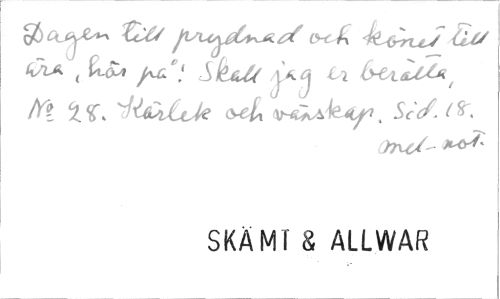 Dagen till prydnad och könet till
ära, hör på! Skall jag er berätta,
No 28. Kärlek och vänskap. Sid. 18.
mel-not.
SKÄMT & ALLWAR